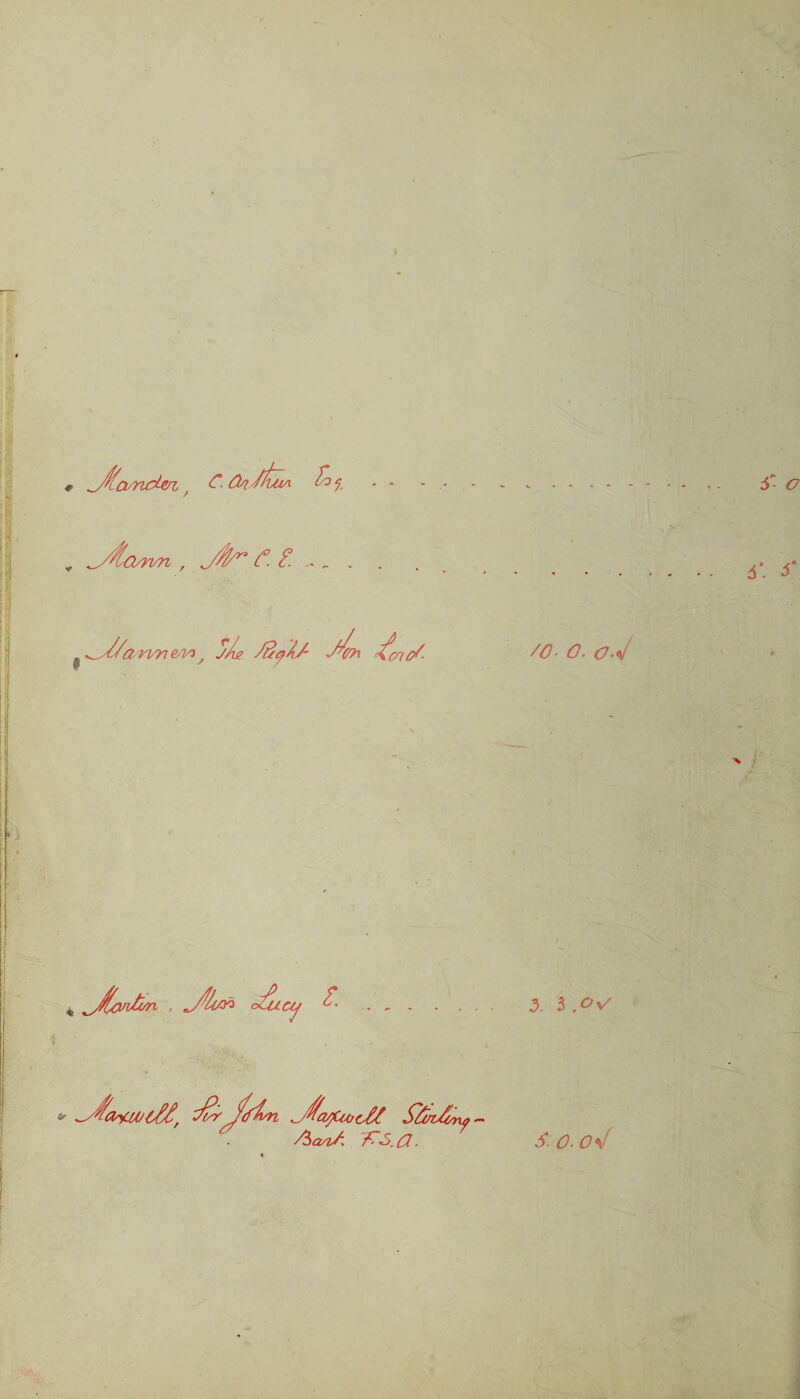 Mander, C. Arthur Esq. 5. 0
Mann, Mrs C. E. 5. 5
Manners, The Right Hon Lord. 10. 0. 0.√
Martin, Miss Lucy E. 3. 3. 0√
Maxwell, Sir John Maxwell Stirling-
Bart. F.S.A. 5. 0. 0√